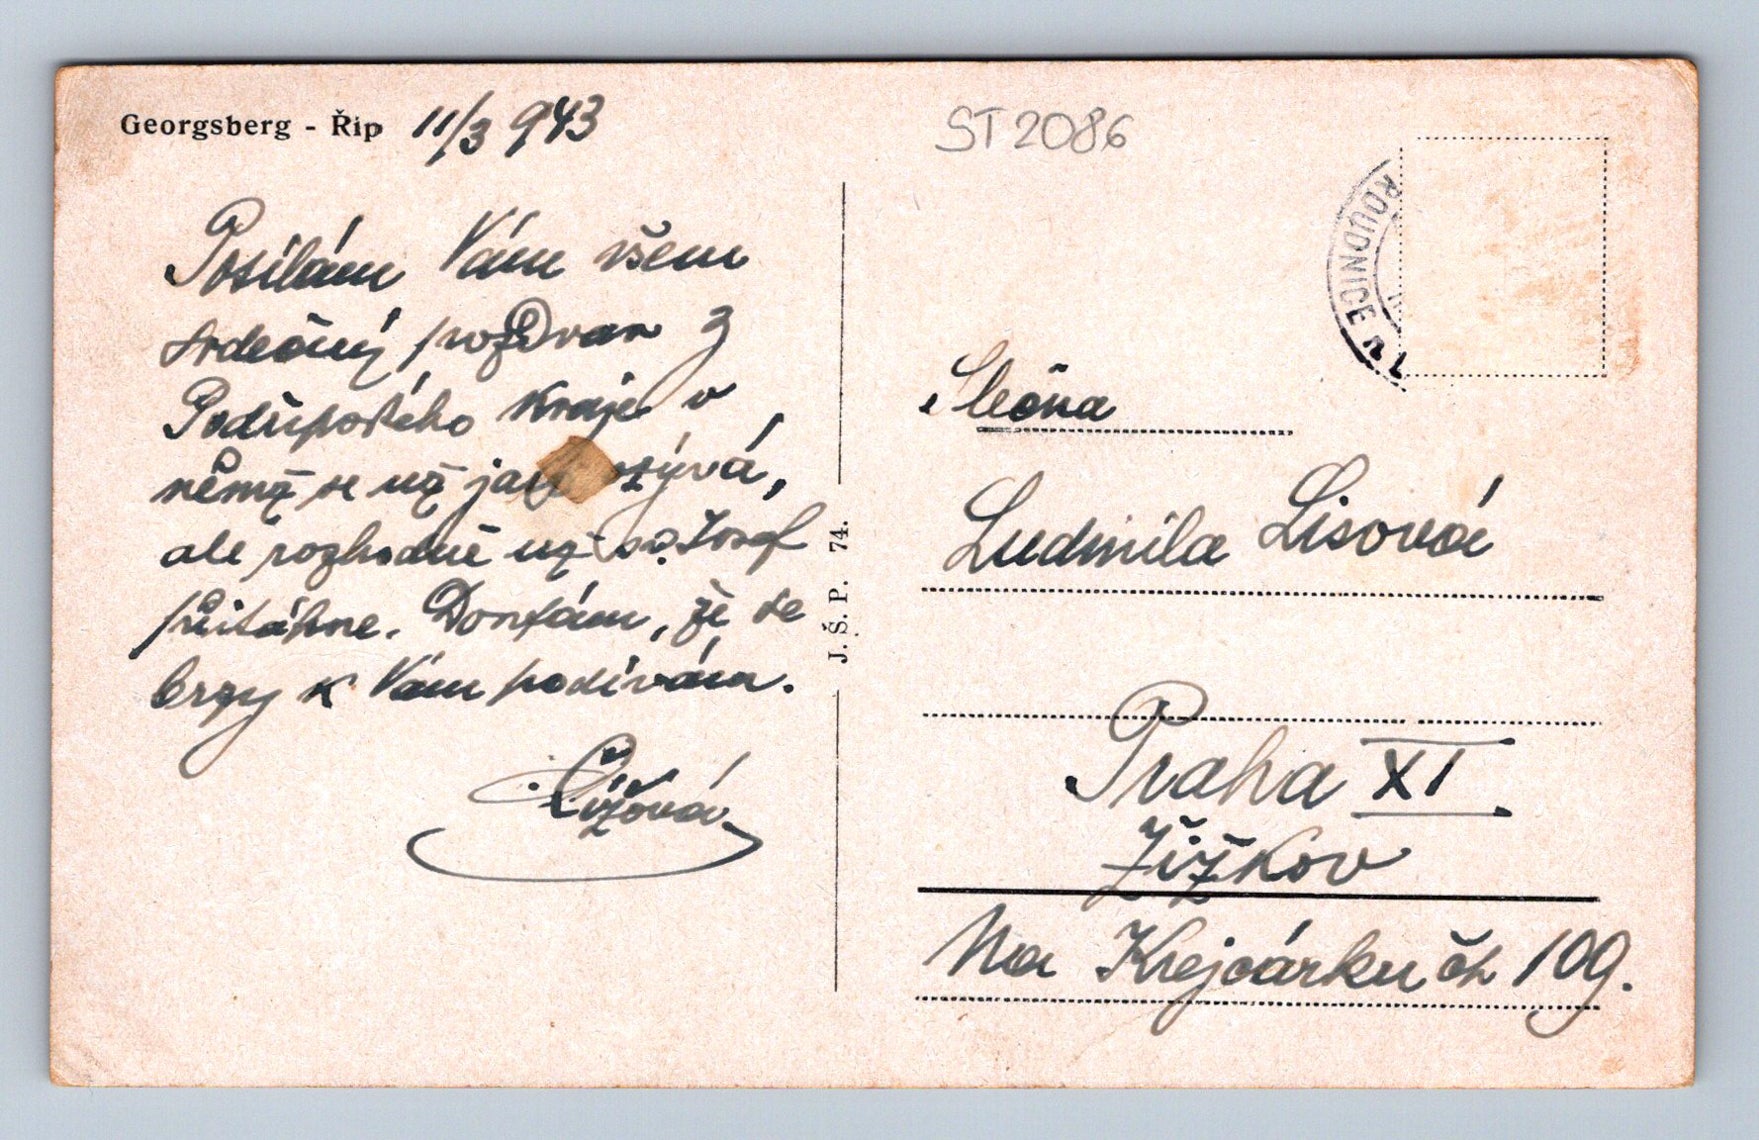 Georgsberg - Řip 11/3 943
ST 2086
ROUDNICE n. L
Posílám Vám všem
srdečný pozdrav z
Podřipského kraje v
němž se už jaro ozývá,
ale rozhodně už sv. Josef
přitáhne. Doufám, že se
brzy k Vám podívám.
Čížová
J. Š. P. 74.
Slečna
Ludmila Lisová
Praha XI
Žižkov
Na Krejcárku čh 109.